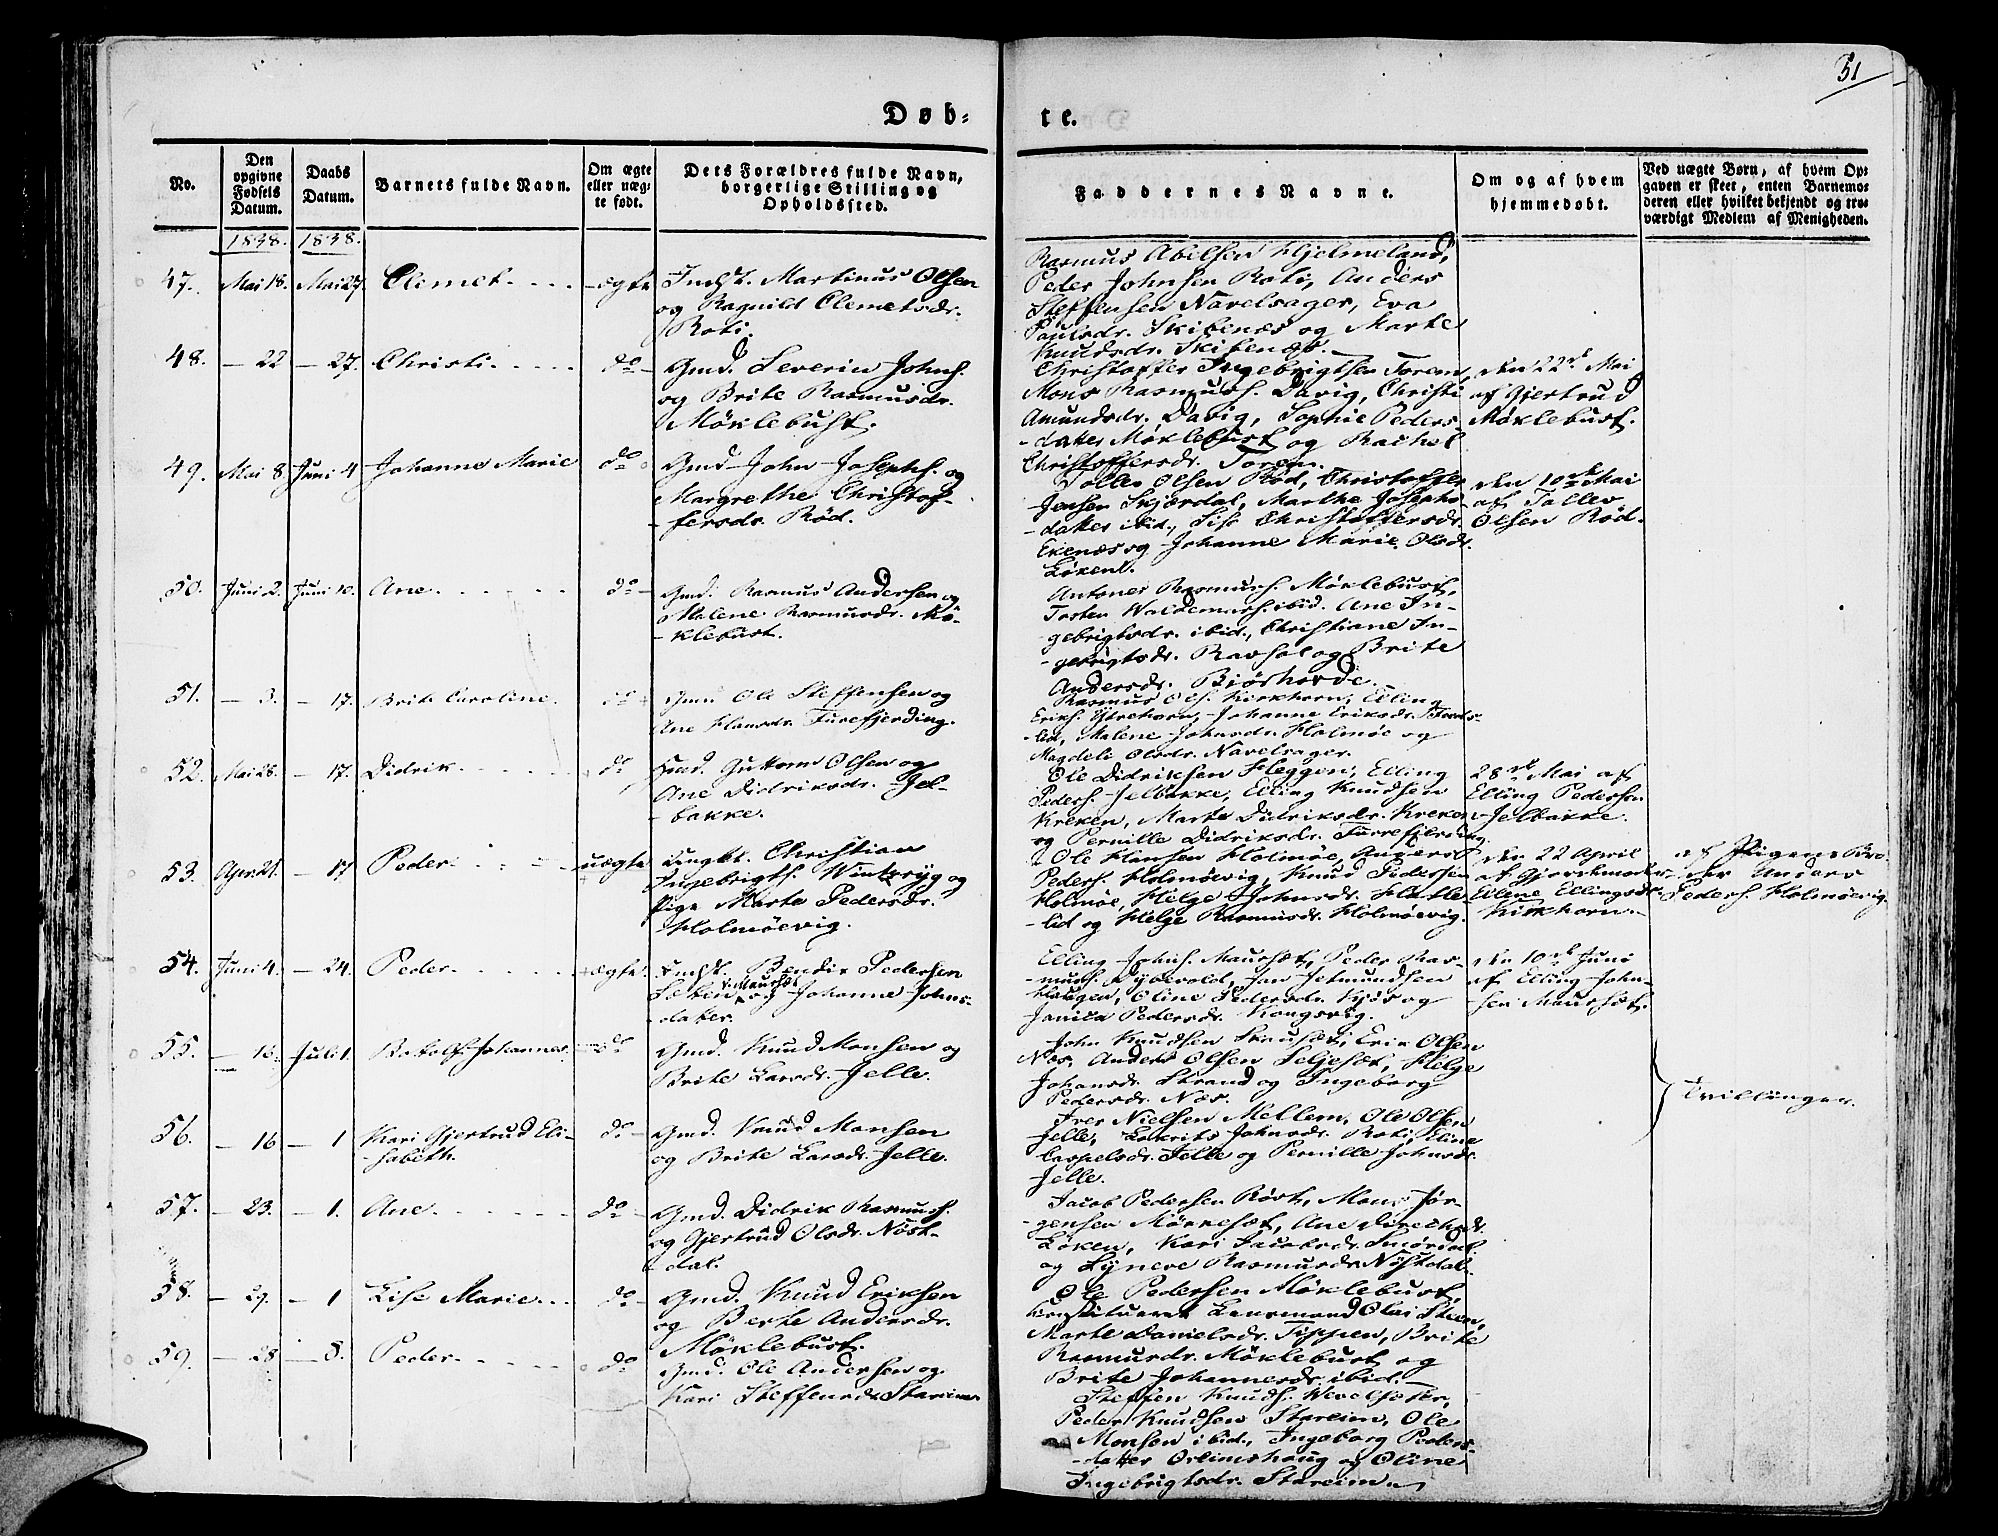 51
Døb-
te.
No.
Den opgivne Fødsels Datum.
Daabs Datum.
Barnets fulde Navn.
Om ægte eller uægte født.
Dets Forældres fulde Navn, borgerlige Stilling og Opholdssted.
Faddernes Navne.
Om og af hvem hjemmedøbt.
Ved uægte Børn, af hvem Opgaven er skeet, enten Barnemoderen eller hvilket bekjendt og troværdigt Medlem af Menigheden.
1838. 1838.
47. Mai 18. Mai 27 Clemet. ægte
Indst. Martinus Olsen
og Ragnild Clemetsdr.
Roti.
Rasmus Abelsen Hjelmeland,
Peder Johnsen Roti, Anders
Steffensen Navelsager, Eva
Paulsdr. Skibenæs og Marte
Knudsdr. Skibenæs.
48. — 22 — 27. Christi. do
Gmd. Severin Johns.
og Brite Rasmusdr.
Møklebust.
Christoffer Ingebrigtsen Torem,
Mons Rasmuss. Davig, Christi
Amundsdr. Davig, Sophie Peders-
datter Møklebust og Rachel
Christoffersdr. Torem.
den 22de Mai
af Gjertrud
Møklebust.
49. Mai 8. Juni 4 Johanne Marie do
Gmd. John Josephs. og
Margrethe Christof-
fersdr. Rød.
Tollev Olsen Rød, Christoffer
Jensen Skjærdal, Marthe Josephs-
datter ibid., Sise Christoffersdr.
Ekenæs og Johanne Marie Olsdr.
Løkens.
den 10de Mai
af Tollev
Olsen Rød.
50. Juni 2. Juni 10. Ane. do
Gmd. Rasmus Andersen og
Malene Rasmusdr. Mø-
klebust.
Antones Rasmuss. Møklebust,
Torsten Waldemars. ibid. Ane In-
gebrigtsdr. ibid., Christiane In-
gebrigtsdr. Ravshol og Brite
Andersdr. Bjørhovde.
51. — 3. — 17. Brite Caroline. do
Gmd. Ole Steffensen og
Ane Hansdr. Furefjerding.
Rasmus Ols. Kirkhorn, Elling
Eriks. Ytrehorn, Johanne Eriksdr.
lid, Malene Johnsdr. Holmøe og
Magdeli Olsdr. Navelsager.
52. Mai 28. — 17. Didrik. do
Hmd. Guttorm Olsen og
Ane Didriksdr. Jel-
bakke.
Ole Didriksen Heggen, Elling
Peders. Jelbakke, Elling Knudsen
Kreken, Marte Didriksdr. Kreken
og Pernille Didriksdr. Furrefjerding
28de Mai af
Elling Pedersen
Jelbakke.
53. Apr. 21. — 17 Peder. uægte
Ungkl. Christian
Ingebrigts. Winteryg og
Pige Marte Pedersdr.
Holmøevig.
Ole Hansen Holmøe, Anders
Peders. Holmøevig, Knud Pedersen
Holmøe, Helge Johnsdr. Hatle-
lid og Helge Rasmusdr. Holmøevig.
den 22 April
af Gjordemoder
Eilene Ellingsdr.
Kirkhorn.
af Pigens Bro-
der Anders
Peders. Holmøevig.
54. Juni 4. — 24. Peder. ægte.
Indst. Bendix Pedersen
og Johanne Johns-
datter.
Elling Johns. Maurset, Peder Ras-
muss. Dybevold, Jan Jetmundsen
Haugen, Oline Pedersdr. Kjøs og
Janica Pedersdr. Kongsvig.
den 10de Juni
af Elling John-
sen Maurset.
55. — 16. Juli 1. Botolf Johannes. do
Gmd. Knud Monsen og
Brite Larsdr. Jelle.
John Knudsen Skauset, Erik Olsen
Næs, Anders Olsen Seljeset, Helge
Johansdr. Strand og Ingeborg
Pedersdr. Næs.
Tvillinger.
56. — 16 — 1 Kari Gjertrud Eli-
sabeth. do
Gmd. Knud Monsen
og Brite Larsdr. Jelle.
Iver Nielsen Mellem, Ole Olsen
Jelle, Lavrits Johnsdr. Roti, Eline
Caspelsdr. Jelle og Pernille Johnsdr.
Jelle.
57. — 23. — 1. Ane. do
Gmd. Didrik Rasmuss.
og Gjertrud Olsdr. Nøst-
dal.
Jacob Pedersen Røst, Mons Jør-
gensen Mørkeset, Ane Diricksdr.
Løken, Kari Jacobsdr. Smørdal
og Syneve Rasmusdr. Nøstdal.
58. — 29. — 1 Lise Marie. do
Gmd. Knud Eriksen
og Berte Andersdr.
Møklebust.
Ole Pedersen Møklebust,
konstitueret Lensmand Olai Steen,
Marte Danielsdr. Tippen, Brite
Rasmusdr. Møklebust og
Brite Johannesdr. ibid.
59. — 28 — 8. Peder. do
Gmd. Ole Andersen og
Kari Steffensdr. Stareim
Steffen Knuds. Wevelsetter,
Peder Knudsen Stareim, Ole
Monsen ibid., Ingeborg Peders-
datter Orheimshoug og Oline
Ingebrigtsdr. Stareim.